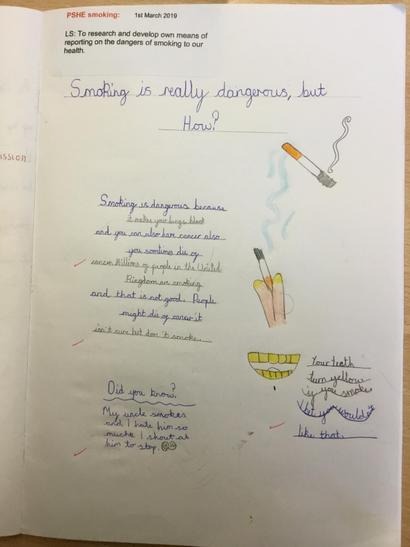 PSHE smoking: 1st March 2019
LS: To research and develop own means of
reporting on the dangers of smoking to our
health.
Smoking is really dangerous, but
How?
Smoking is dangerous because
it makes your lungs black
and you can also have cancer also
you somtims die of
cancer. Millions of people in the United
Kingdom are smoking
and that is not good. People
might die of cancer it
isn't sure but don't smoke.
Your teeth
turn yellow
if you smoke
bet you wouldn't
like that.
Did you know?
My uncle smokes
and I hate him so
muche I shout at
him to stop.
ission